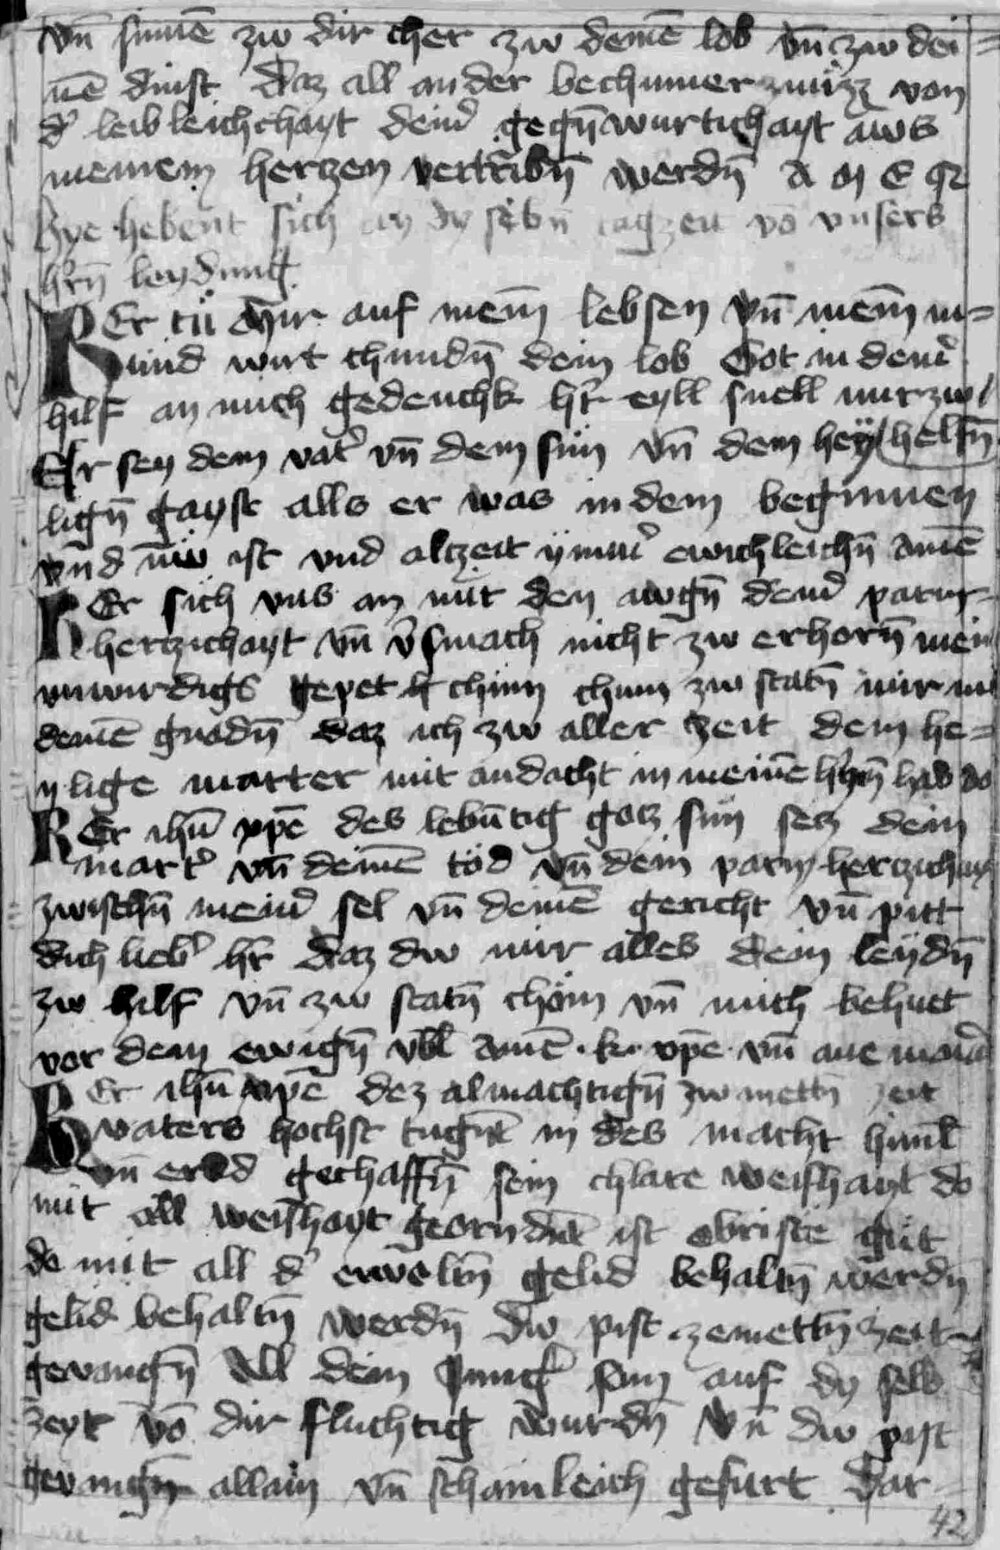 vn̄ sinnē zw dir cher zw deinē lob vn̄ zw dei=
nē dinst daz all ander bechumernuzz von
d' leibleichchayt dein' gegn̄wurtichayt aws
meinem hertzen vertribn̄ werdn̄ A M E N
Hye hebent sich an dy sibn̄ tagzeit vō vnsers
h'rn̄ leydung
HEr tü mir auf meinn̄ lebsen vn̄ meinn̄ m=
und wirt chundn̄ dein lob Got in dein'
hilf an mich gedenchk h'r eyll snell mir zw
Er sey dem vat' vn̄ dem sün vn̄ dem hey helfn̄
lign̄ gayst alls er was in dem beginnen
vnd nw ist vnd altzeit ymm' ewichleichn̄ amē
HEr sich vns an mit den awgn̄ dein' parm=
hertzichayt vn̄ v'smach nicht zw erhorn̄ mein
vnwirdigs gepet chum zw statn̄ mir mit
deinē gnadn̄ daz ich zw aller tzeit dein he=
ylige marter mit andacht in meinē h'tzn̄ hab
HEr ihū xpē des lebn̄tig gotz sun setz dein
mart' vn̄ deinē töd vn̄ dein parmhertzichayt
zwischn̄ mein' sel vn̄ deinē gericht vn̄ pitt
dich lieb' h'r daz dw mir alles dein leydn̄
zw hilf vn̄ zw statn̄ chöm vn̄ mich behuet
vor dem ewign̄ vbl amē . k . xpē . vn̄ aue maria
HEr ihū xpē dez almachtign̄ zw mettn̄ zeit
vaters hochst tugn̄t in des macht himl
vn̄ erd geschaffn̄ sein chlare weishayt do
mit all weishayt georndnt ist obriste güt
do mit all d' erweltn̄ gelid behaltn̄ werdn̄
gelid behaltn̄ werdn̄ Dw pist ze mettn̄ zeit
gevangn̄ All dein Jung' sein auf dy selb
zeyt vō dir fluchtig wurdn̄ vn̄ dw pist
gevangn̄ allain vn̄ schamleich gefurt Dar=
42